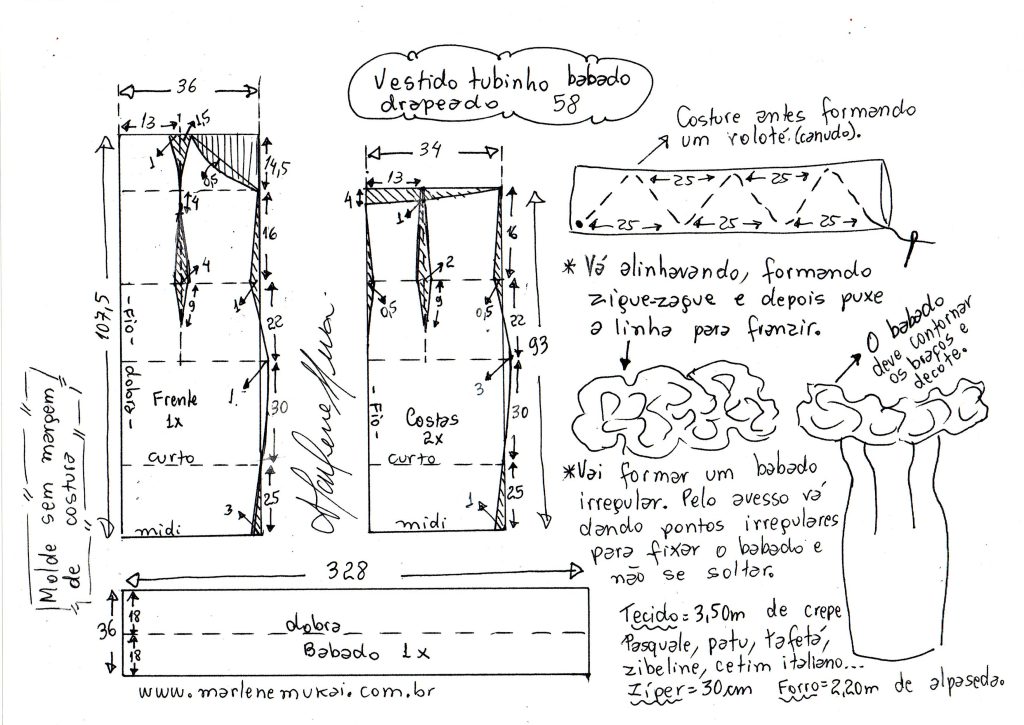 Vestido tubinho babado
drapeado 58
36
13
1,5
1
14,5
0,5
4
16
4
1
9
22
107,5
- Fio -
dobra -
1
Frente
1x
30
curto
25
3
midi
34
13
4
1
16
2
0,5
9
0,5
22
93
3
- Fio -
Costas
2x
30
curto
25
1
midi
Marlene Mukai.
Molde sem margem
de costura
328
36
18
18
dobra
Babado 1x
www.marlenemukai.com.br
Costure antes formando
um rolotê.(canudo).
25 25
25 25 25
* Vá alinhavando, formando
zigue-zague e depois puxe
a linha para franzir.
O babado
deve contornar
os braços e
decote.
*Vai formar um babado
irregular. Pelo avesso vá
dando pontos irregulares
para fixar o babado e
não se soltar.
Tecido = 3,50m de crepe
Pasquale, patu, tafetá,
zibeline, cetim italiano...
Zíper = 30cm Forro = 2,20m de alpaseda.